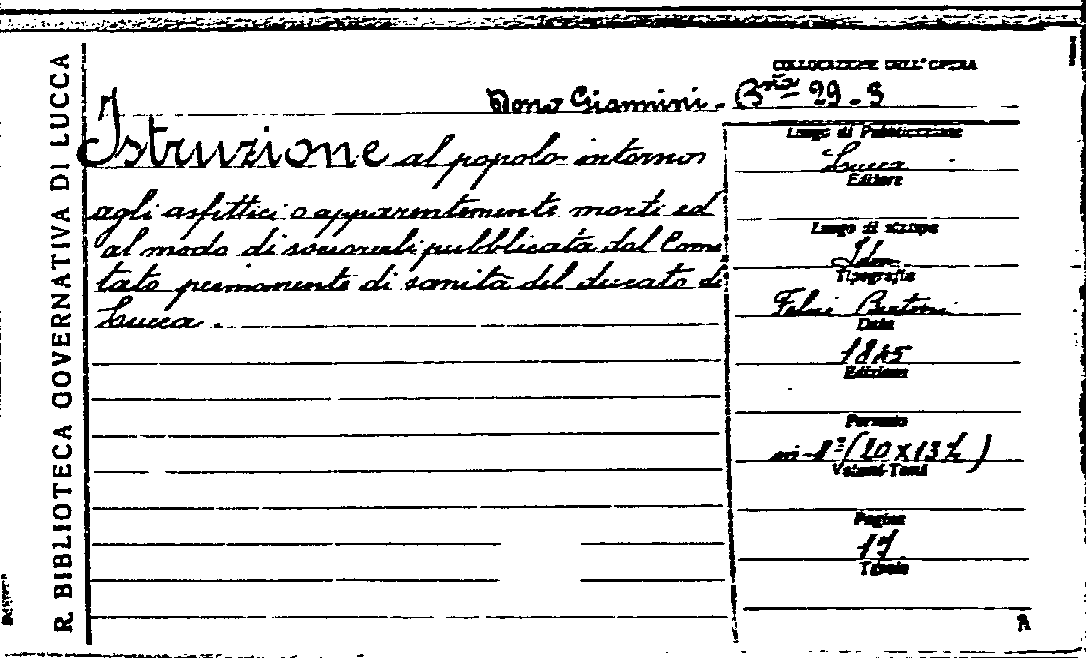 R. BIBLIOTECA GOVERNATIVA DI LUCCA
COLLOCAZIONE DELL' OPERA
Dono Giannini. Bta 29. 9
Istruzione al popolo intorno
agli asfittici o apparentemente morti ed
al modo di soccorrerli pubblicata dal Comi
tato permanente di sanità del ducato di
Lucca.
Luogo di Pubblicazione
Lucca
Editore
Luogo di stampa
Idem
Tipografia
Felice Bertini
Data
1845
Edizione
Formato
in-8° (20 x 13½)
Volumi-Tomi
Pagine
17
Tavole
A